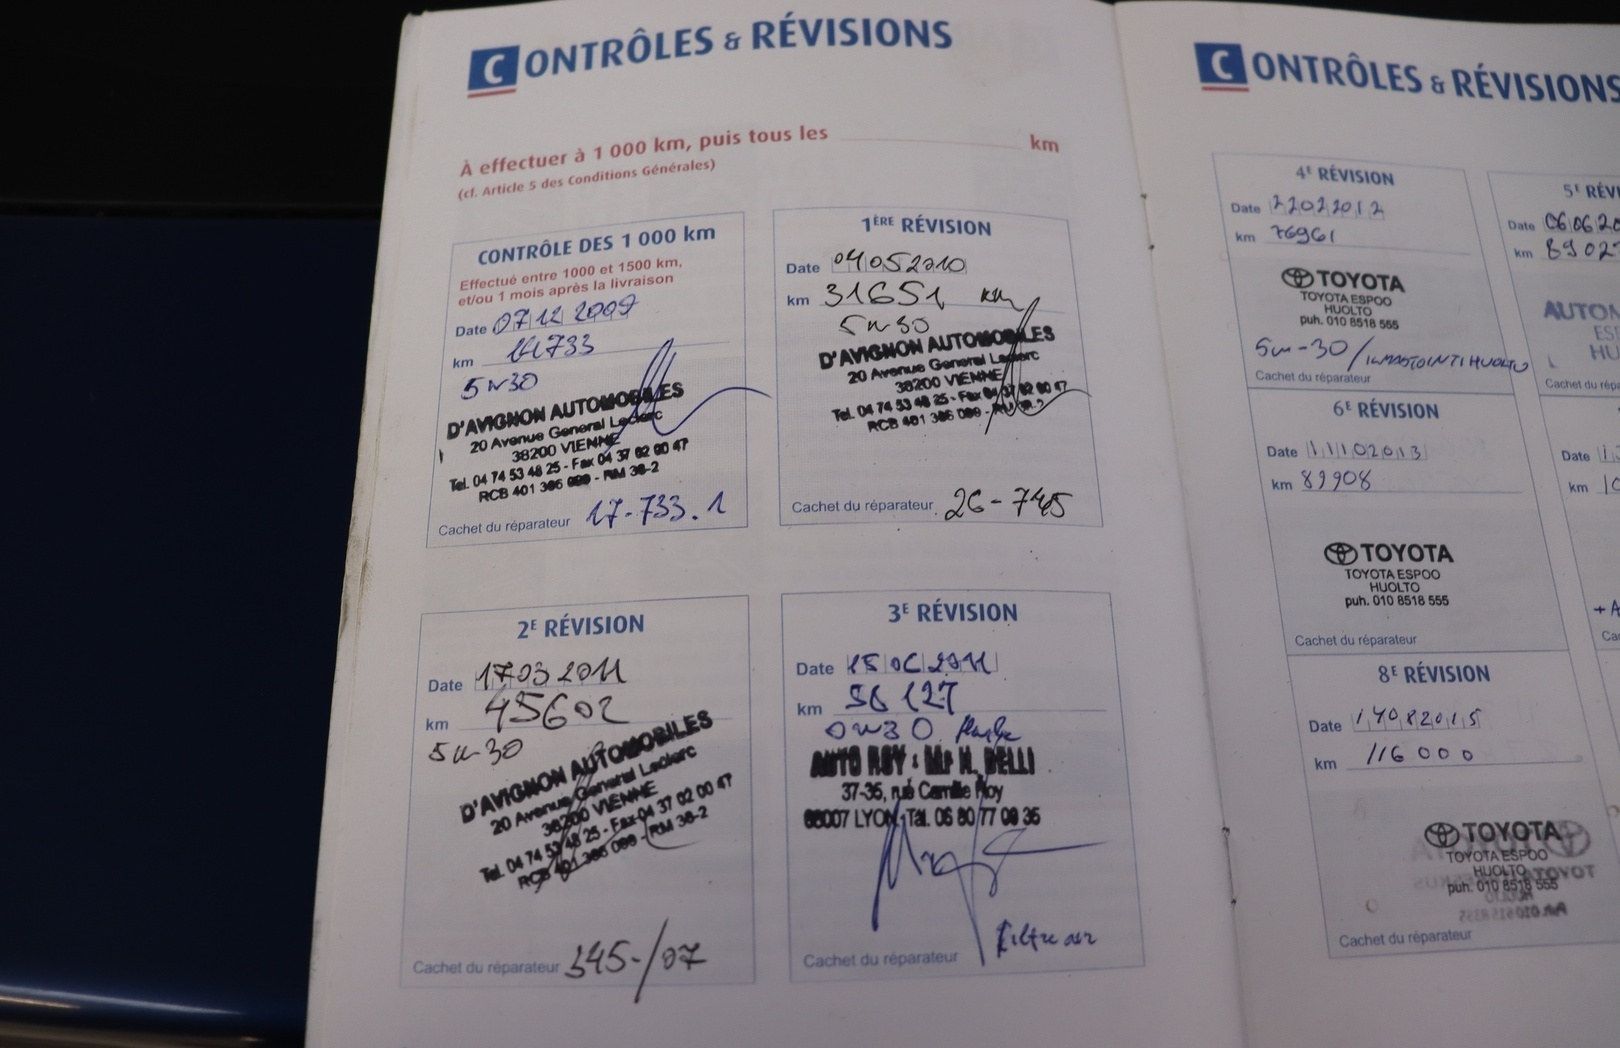 CONTRÔLES & RÉVISIONS
À effectuer à 1 000 km, puis tous les km
(cf. Article 5 des Conditions Générales)
CONTRÔLE DES 1 000 km
Effectué entre 1000 et 1500 km,
et/ou 1 mois après la livraison
Date 07 12 2009
km
5w30
D'AVIGNON AUTOMOBILES
20 Avenue General Leclerc
38200 VIENNE
Tel. 04 74 53 48 25 - Fax 04 37 02 00 47
Cachet du réparateur 17-733.1
1ÈRE RÉVISION
Date 04052010
km 31651 km
5w30
D'AVIGNON AUTOMOBILES
20 Avenue General Leclerc
38200 VIENNE
Tel. 04 74 53 48 25 - Fax 04 37 02 00 47
Cachet du réparateur 26-745
2E RÉVISION
Date 17032011
km 45602
5w-30
D'AVIGNON AUTOMOBILES
20 Avenue General Leclerc
38200 VIENNE
Tel. 04 74 53 48 25 - Fax 04 37 02 00 47
Cachet du réparateur
3E RÉVISION
Date 2011
km 56127
0w30
AUTO ROY
37-35, rue Camille Roy
LYON Tél. 06 80 77 09 35
Filtre air
Cachet du réparateur
CONTRÔLES & RÉVISIONS
4E RÉVISION
Date 22022012
km 76961
TOYOTA
TOYOTA ESPOO
HUOLTO
puh. 010 8518 555
5w-30 / ILMASTOINTI HUOLTO
Cachet du réparateur
5E RÉVI
Date 06.06.20
km 8902
AUTO
HU
Cachet du rép
6E RÉVISION
Date 11102013
km 89908
TOYOTA
TOYOTA ESPOO
HUOLTO
puh. 010 8518 555
Cachet du réparateur
Date
km 10
+ A
Ca
8E RÉVISION
Date 14082015
km 116000
TOYOTA
TOYOTA ESPOO
HUOLTO
puh. 010 8518 555
Cachet du réparateur